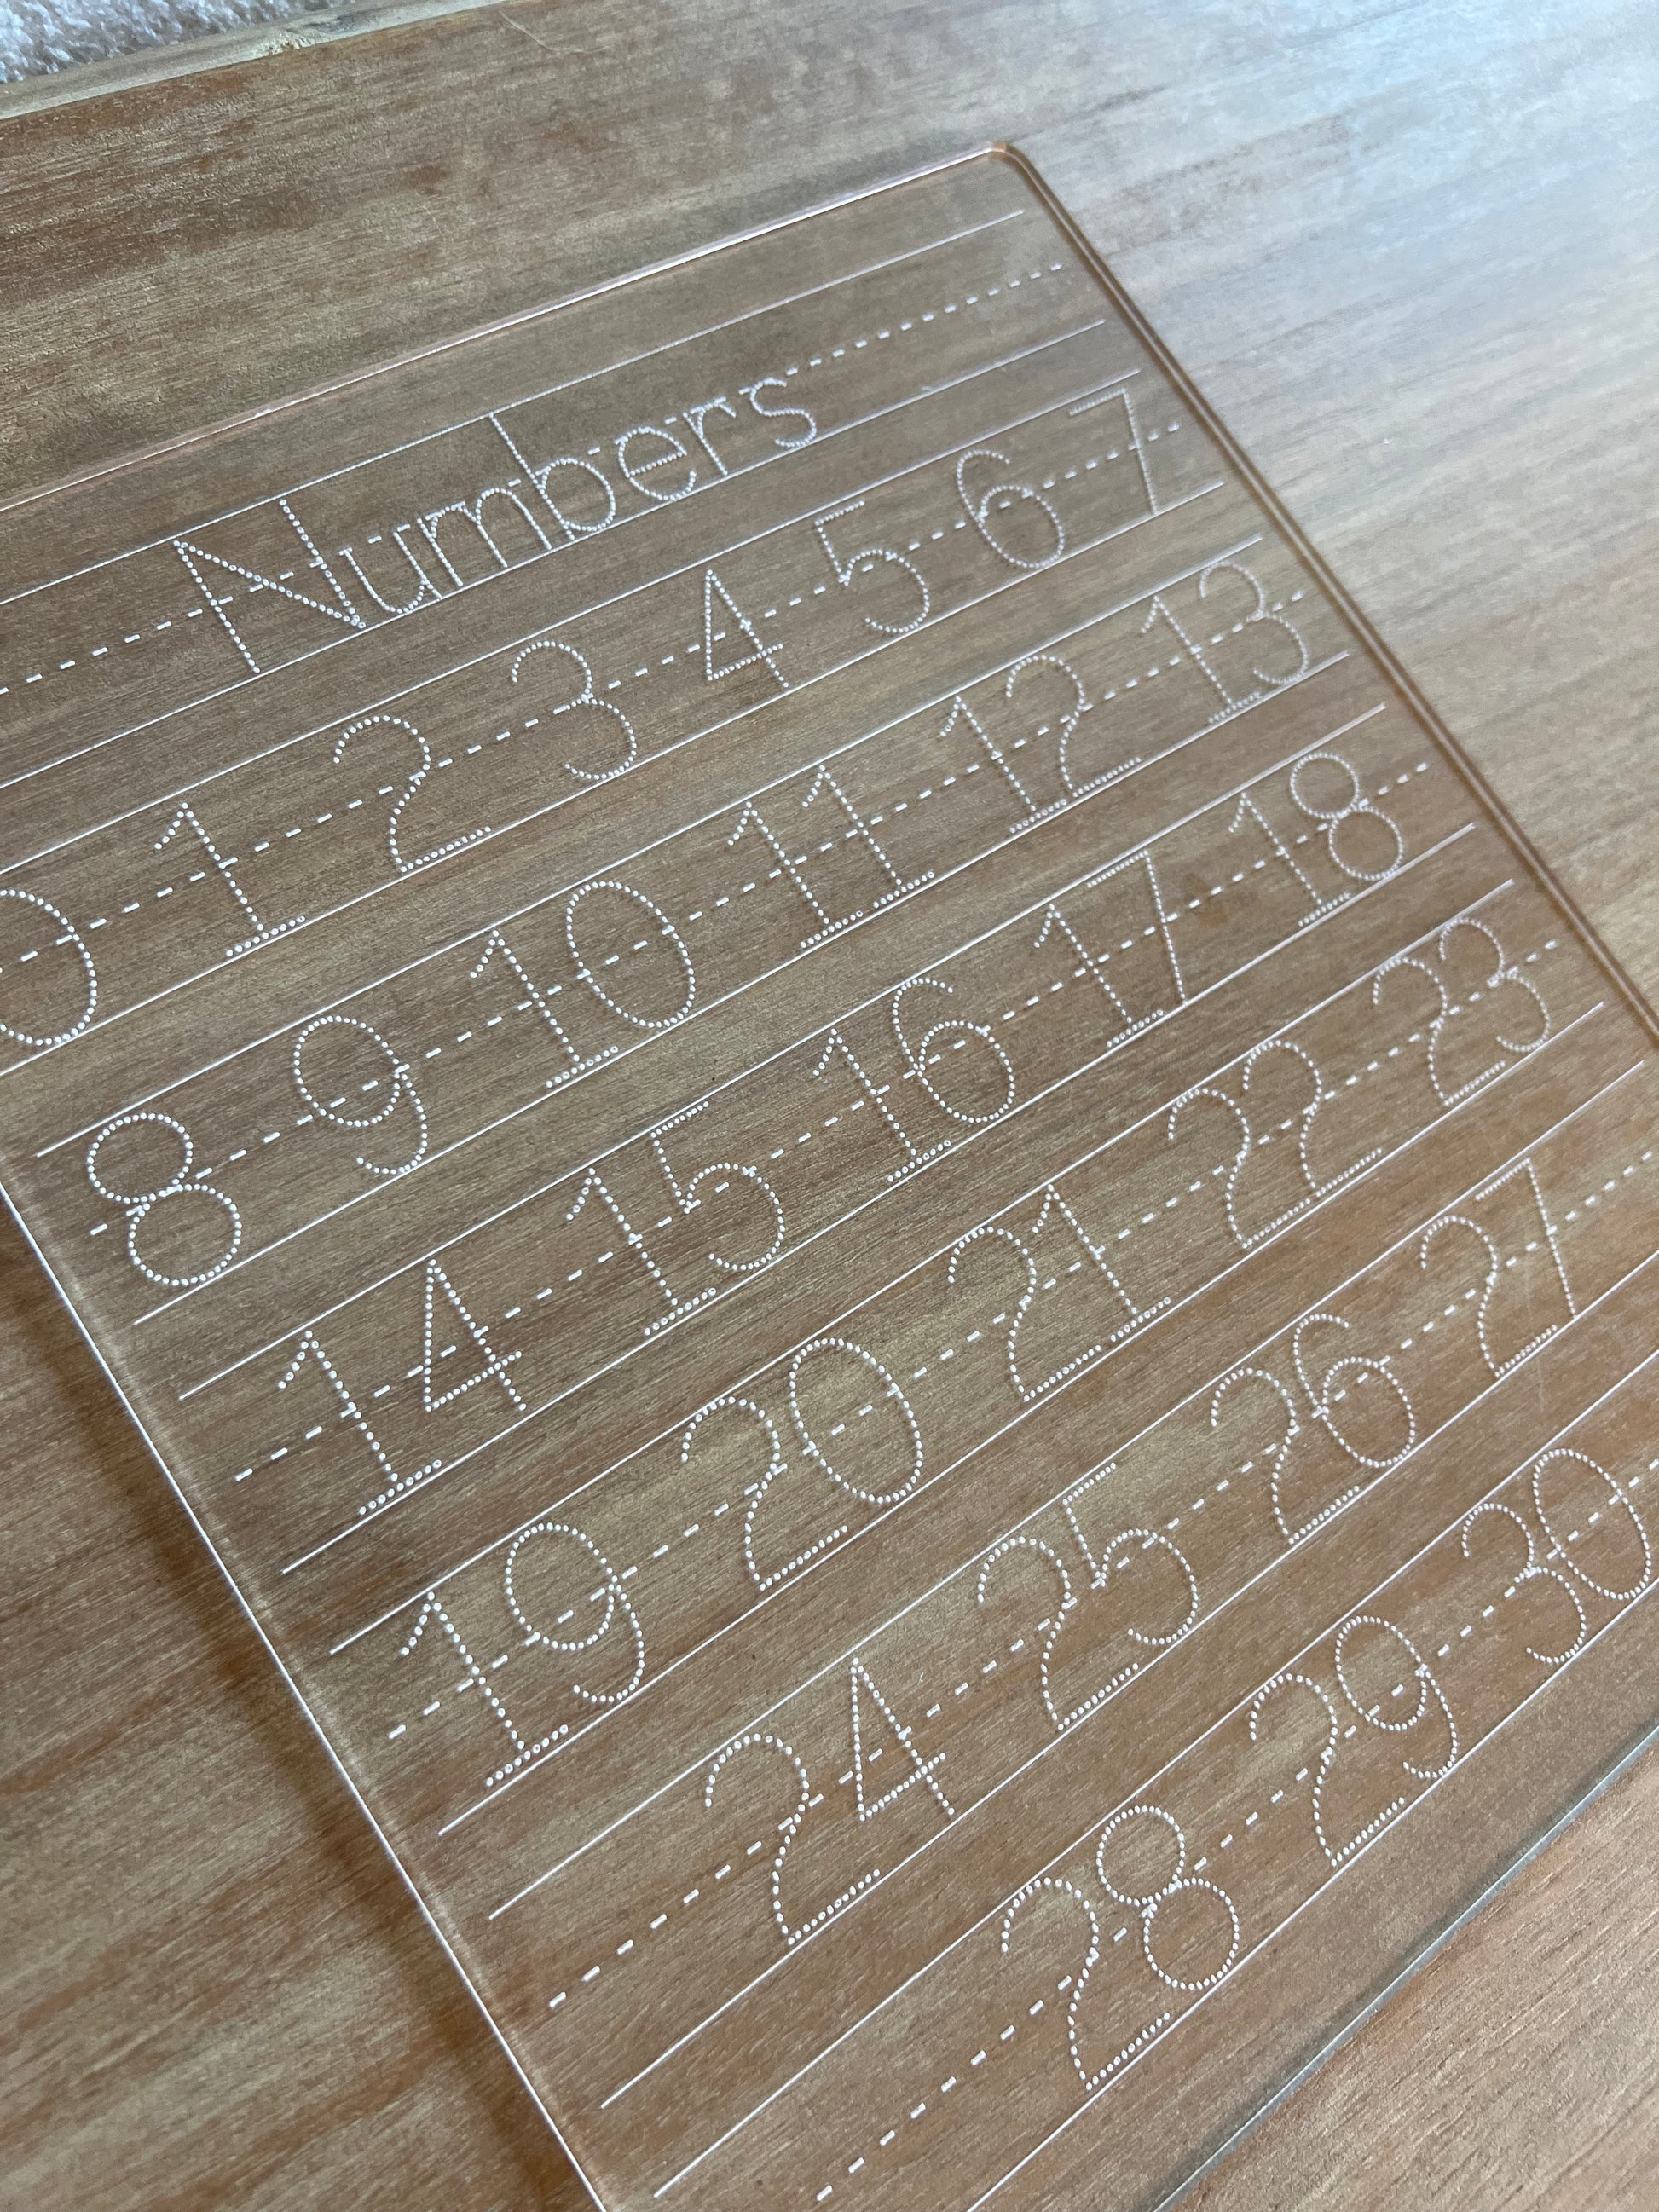 Numbers
0 1 2 3 4 5 6 7
8 9 10 11 12 13
14 15 16 17 18
19 20 21 22 23
24 25 26 27
28 29 30